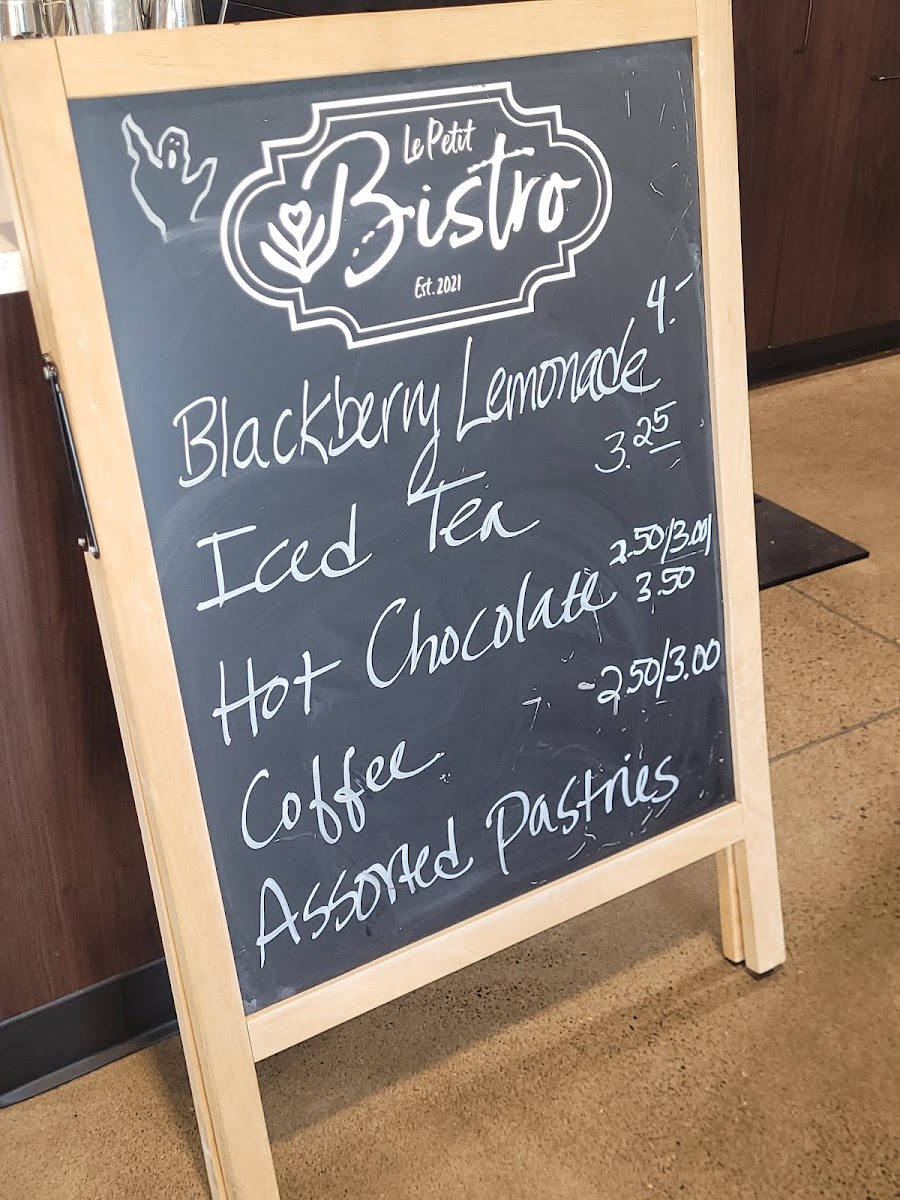 Le Petit
Bistro
Est. 2021
Blackberry Lemonade 4.-
Iced Tea 3.25
Hot Chocolate 2.50/3.00/
3.50
Coffee -2.50/3.00
Assorted Pastries